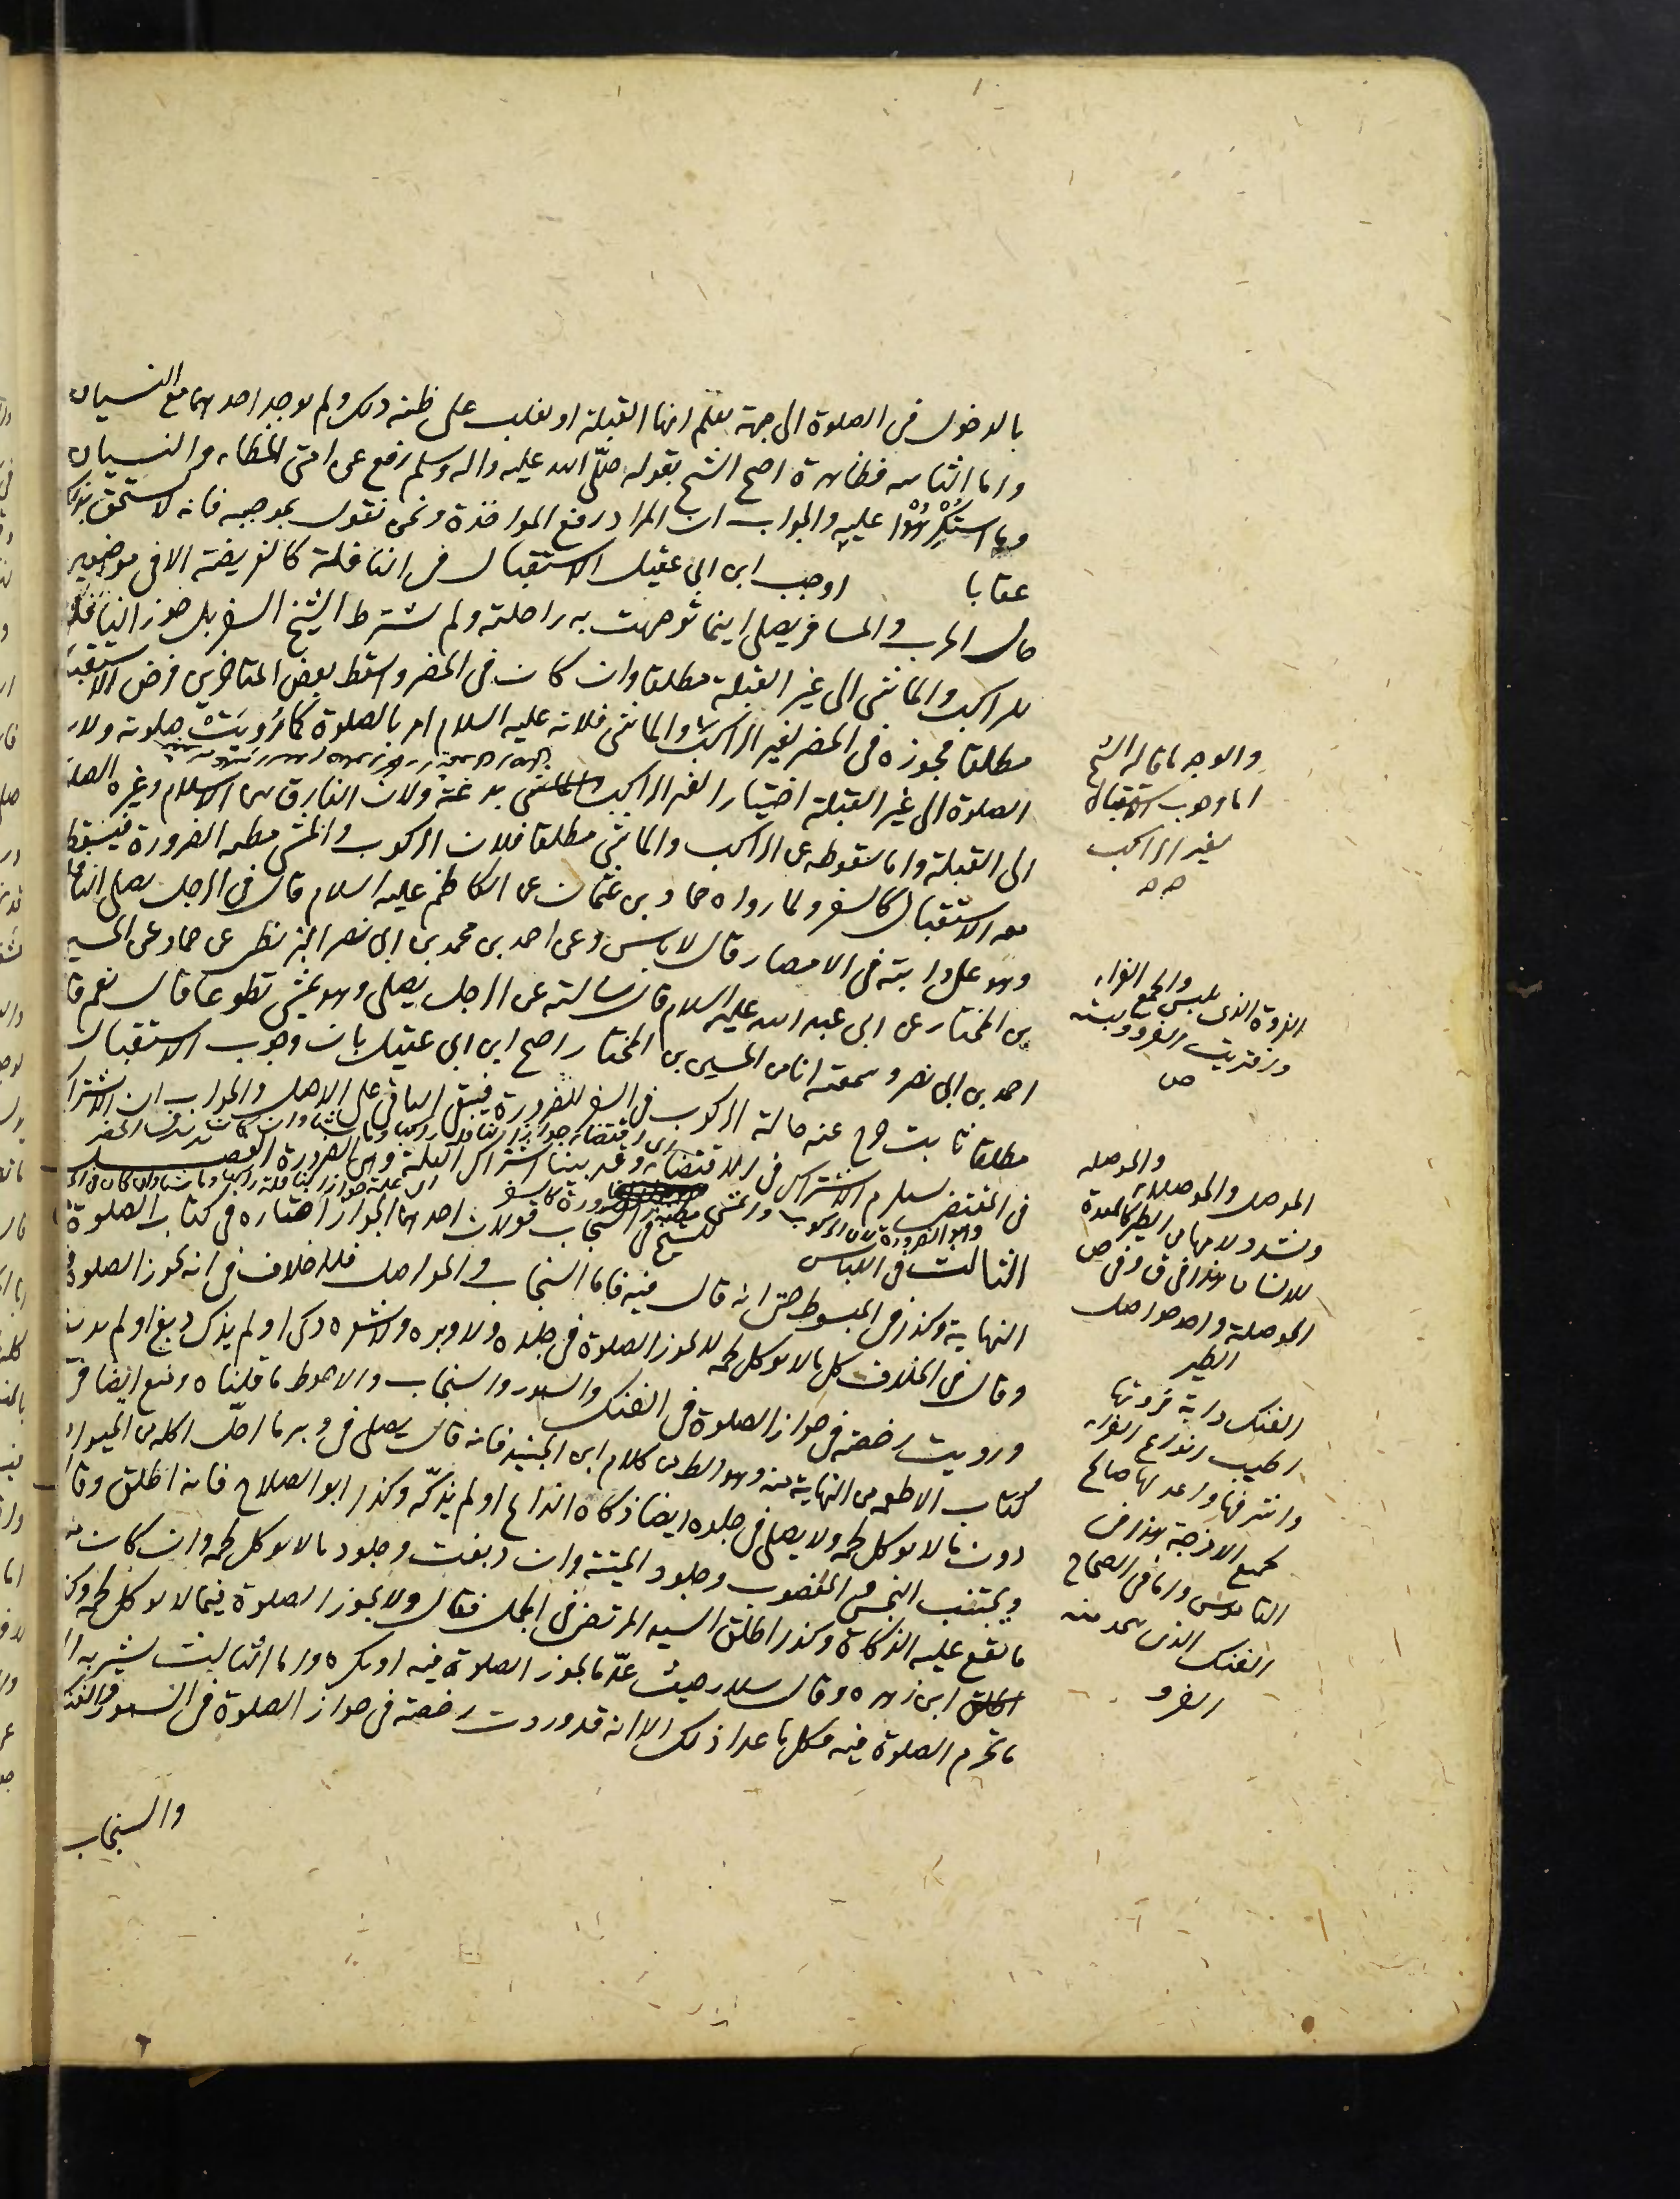 بالدخول فى الصلوة الى جهة يعلم انها القبلة او يغلب على ظنه ذلك ولم يوجد احدهما مع النسيان
واما الثانيه فظاهرة احتج الشيخ بقوله صلّى الله عليه واله وسلم رفع عن امتى الخطاء والنسيان
وما استُكْرِهُوْا عليه والجواب ان المراد رفع المواخذة ونحن نقول بموجبه فانه لا يستحق بذلك
عقابا اوجب ابن ابى عقيل الاستقبال فى النافلة كالفريضة الا فى موضعين
حال الحرب والمسافر يصلى اينما توجهت به راحلته ولم يشترط الشيخ السفر بل جوز النافلة
للراكب والماشى الى غير القبلة مطلقا وان كان فى الحضر واسقط بعض المتاخرين فرض الاستقبال
مطلقا فجوزه فى الحضر لغير الراكب والماشى فلانه عليه السلام امر بالصلوة كما رُوِيَتْ صلوته ولان
الصلوة الى غير القبلة اختيارا لغير الراكب والماشى بدعة ولان الفارق بين الاسلام وغيره الصلوة
الى القبلة واما سقوطه عن الراكب والماشى مطلقا فلان الركوب والمشى مظنه الضرورة فيسقط
معه الاستقبال كالسفر ولما رواه حماد بن عثمان عن الكاظم عليه السلام قال فى الرجل يصلى النافلة
وهو على دابته فى الامصار قال لا باس وعن احمد بن محمد بن ابى نصر البزنطى عن حماد عن الحسين
بن المختار عن ابى عبد الله عليه السلام قال سالته عن الرجل يصلى وهو يمشى تطوعا قال نعم قال
احمد بن ابى نصر وسمعته انا من الحسين بن المختار احتج ابن ابى عقيل بان وجوب الاستقبال
مطلقا ثابت خرج عنه حالة الركوب فى السفر للضرورة فيبقى الباقى على الاصل والجواب ان الاشتراك
فى المقتضى يستلزم الاشتراك فى الاقتضاء وقد بينا اشتراك العلة وهى الضرورة الفصل
اى اقتضاء جواز النافلة راكبا وماشيا وان كانت فى الحضر
اى علة جواز النافلة راكبا وماشيا وان كان فى الحضر
وهو الضرورة لان الركوب والمشى مظنة الضرورة كالسفر
الثالث فى اللباس للشيخ فى السنجاب قولان احدهما الجواز اختاره فى كتاب الصلوة
النهاية وكذا فى المبسوط حتى انه قال فيه فاما السنجاب والحواصل فلا خلاف فى انه يجوز الصلوة
وقال فى الخلاف كل ما لا يوكل لحمه لا يجوز الصلوة فى جلده ولا وبره ولا شعره ذكى او لم يذك دبغ او لم يدبغ
ورويت رخصة فى جواز الصلوة فى الفنك والسمور والسنجاب والاحوط ما قلناه ومنع ايضا فى
كتاب الاطعمه من النهاية منه وهو الظ من كلام ابن الجنيد فانه قال يصلى فى وبر ما احلّ اكله من الحيوان
دون ما لا يوكل لحمه ولا يصلى فى جلده ايضا ذكاه الذابح او لم يذكّه وكذا ابو الصلاح فانه اطلق وقال
ويجتنب النجس والمغصوب وجلود الميتة وان دبغت وجلود ما لا يوكل لحمه وان كان
ما تقع عليه الذكاة وكذا اطلق السيد المرتضى فى الجمل فقال ولا يجوز الصلوة فيما لا يوكل لحمه وكذا
اطلق ابن زهره وقال سلار حيث عدّ ما يجوز الصلوة فيه او يكره واما الثالث يشير به الى
ما تحرم الصلوة فيه فكل ما عدا ذلك الا انه قد وردت رخصة فى جواز الصلوة فى السمور والفنك
والسنجاب
والوجه ما قاله الشيخ
اما وجوب الاستقبال
لغير الراكب
صه
الفروة الذى يلبس والجمع الفراء
وافتريت الفرو لبسته
ص
الموصل والحوصله
وتشدد لامها من الطير كالمعدة
للانسان هذا فى ق وفى ص
الحوصلة واحد حواصل
الطير
الفنك دابة فروتها
اطيب انواع الفراء
واشرفها واعدلها صالح
لجميع الامزجة هذا فى
القاموس واما فى الصحاح
الفنك الذى يتخذ منه
الفرو